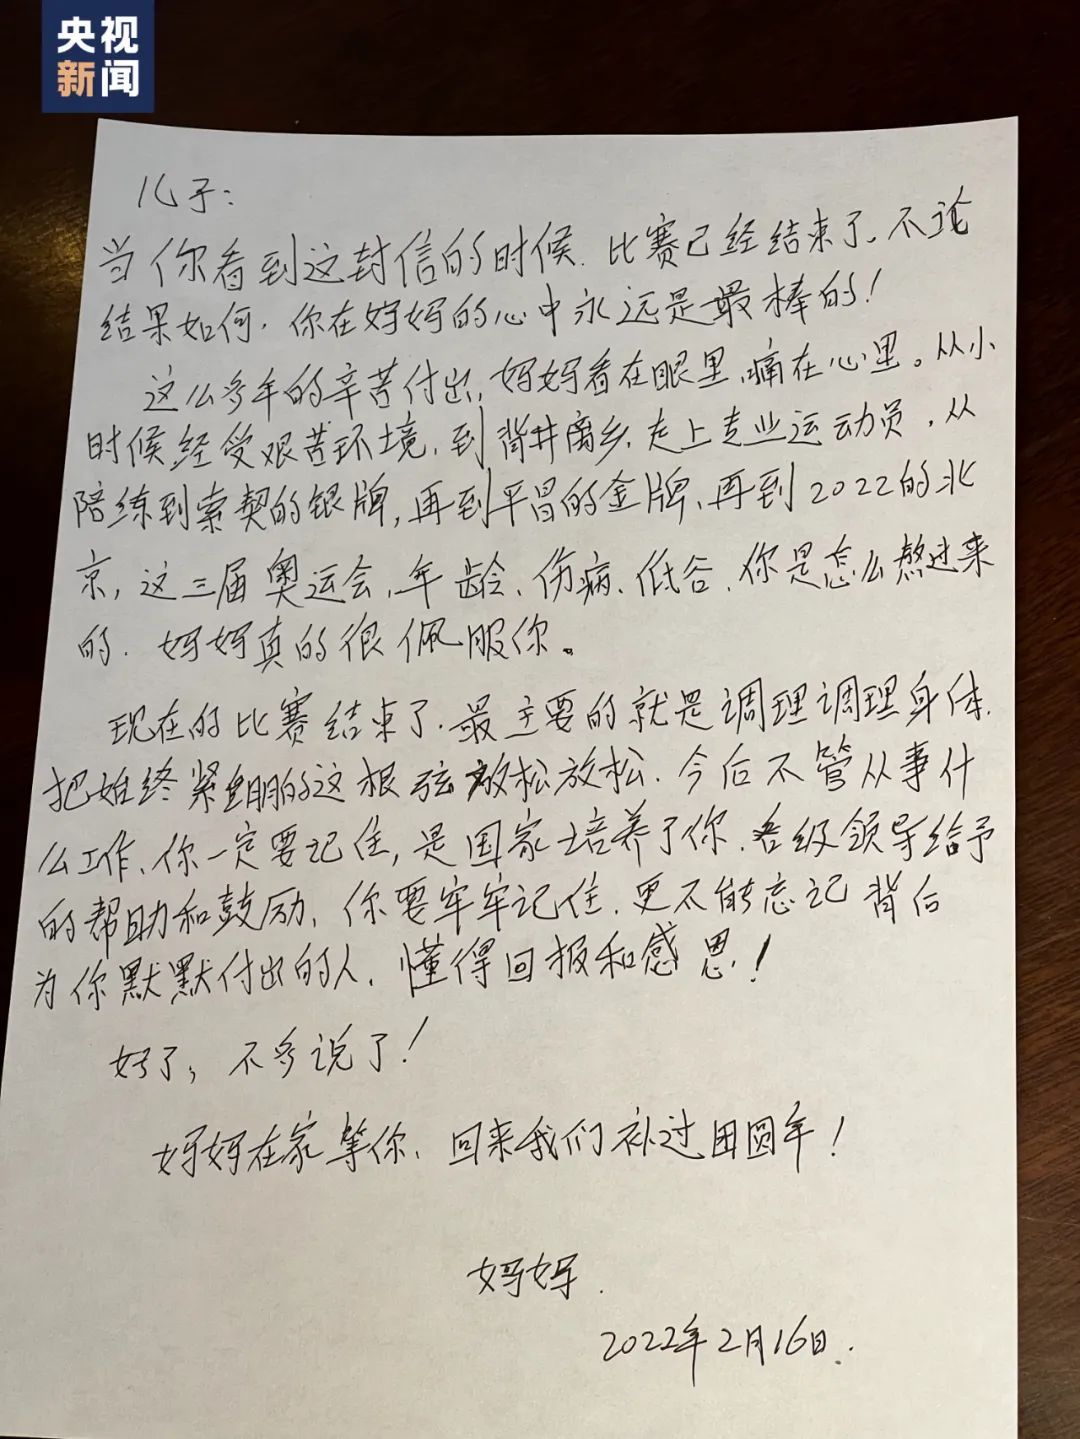 央视
新闻
儿子：
当你看到这封信的时候，比赛已经结束了，不论
结果如何，你在妈妈的心中永远是最棒的！
这么多年的辛苦付出，妈妈看在眼里，痛在心里。从小
时候经受艰苦环境，到背井离乡，走上专业运动员，从
陪练到索契的银牌，再到平昌的金牌，再到2022的北
京，这三届奥运会，年龄、伤病、低谷，你是怎么熬过来
的，妈妈真的很佩服你。
现在的比赛结束了，最主要的就是调理调理身体，
把始终紧绷的这根弦放松放松，今后不管从事什
么工作，你一定要记住，是国家培养了你，各级领导给予
的帮助和鼓励，你要牢牢记住，更不能忘记背后
为你默默付出的人，懂得回报和感恩！
好了，不多说了！
妈妈在家等你，回来我们补过团圆年！
妈妈．
2022年2月16日．